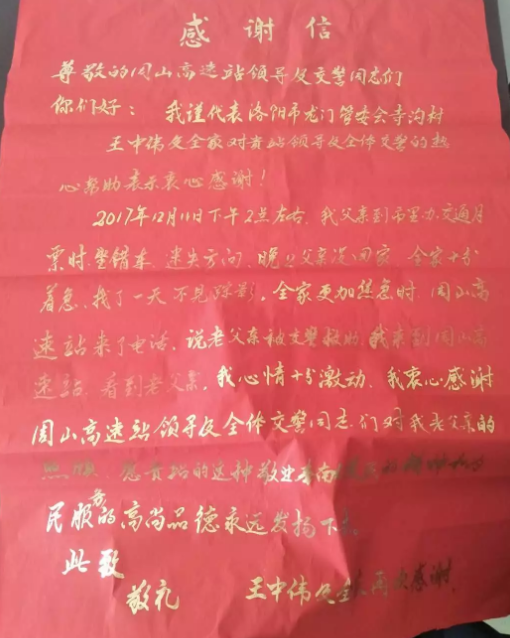 感谢信
尊敬的周山高速站领导及交警同志们
你们好：我谨代表洛阳市龙门管委会寺沟村
王中伟及全家对贵站领导及全体交警的热
心帮助表示衷心感谢！
2017年12月11日下午2点左右，我父亲到市里办交通月
票时坐错车，迷失方向，晚上父亲没回家，全家十分
着急，找了一天不见踪影。全家更加焦急时，周山高
速站来了电话，说老父亲被交警救助，我来到周山高
速站，看到老父亲，我心情十分激动，我衷心感谢
周山高速站领导及全体交警同志们对我老父亲的
照顾，愿贵站的这种敬业
民服务的高尚品德永远发扬下去
此致
敬礼 王中伟及全家再次感谢